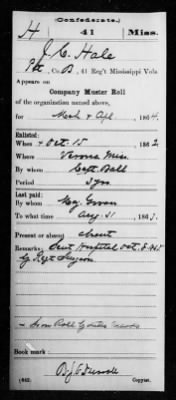 (Confederate.)
H 41 Miss.
J. C. Hale
Pvt, Co. B, 41 Reg't Mississippi Vols
Appears on
Company Muster Roll
of the organization named above,
for Mch & Apl, 1864.
Enlisted:
When Oct. 15, 1862
Where Verona Miss.
By whom Capt. Ball
Period 3 yrs
Last paid:
By whom Maj.
To what time Aug. 31, 1863.
Present or absent absent
Remarks: Sent Hospital Oct.
by Regt Surgeon
Book mark:
(642) Copyist.